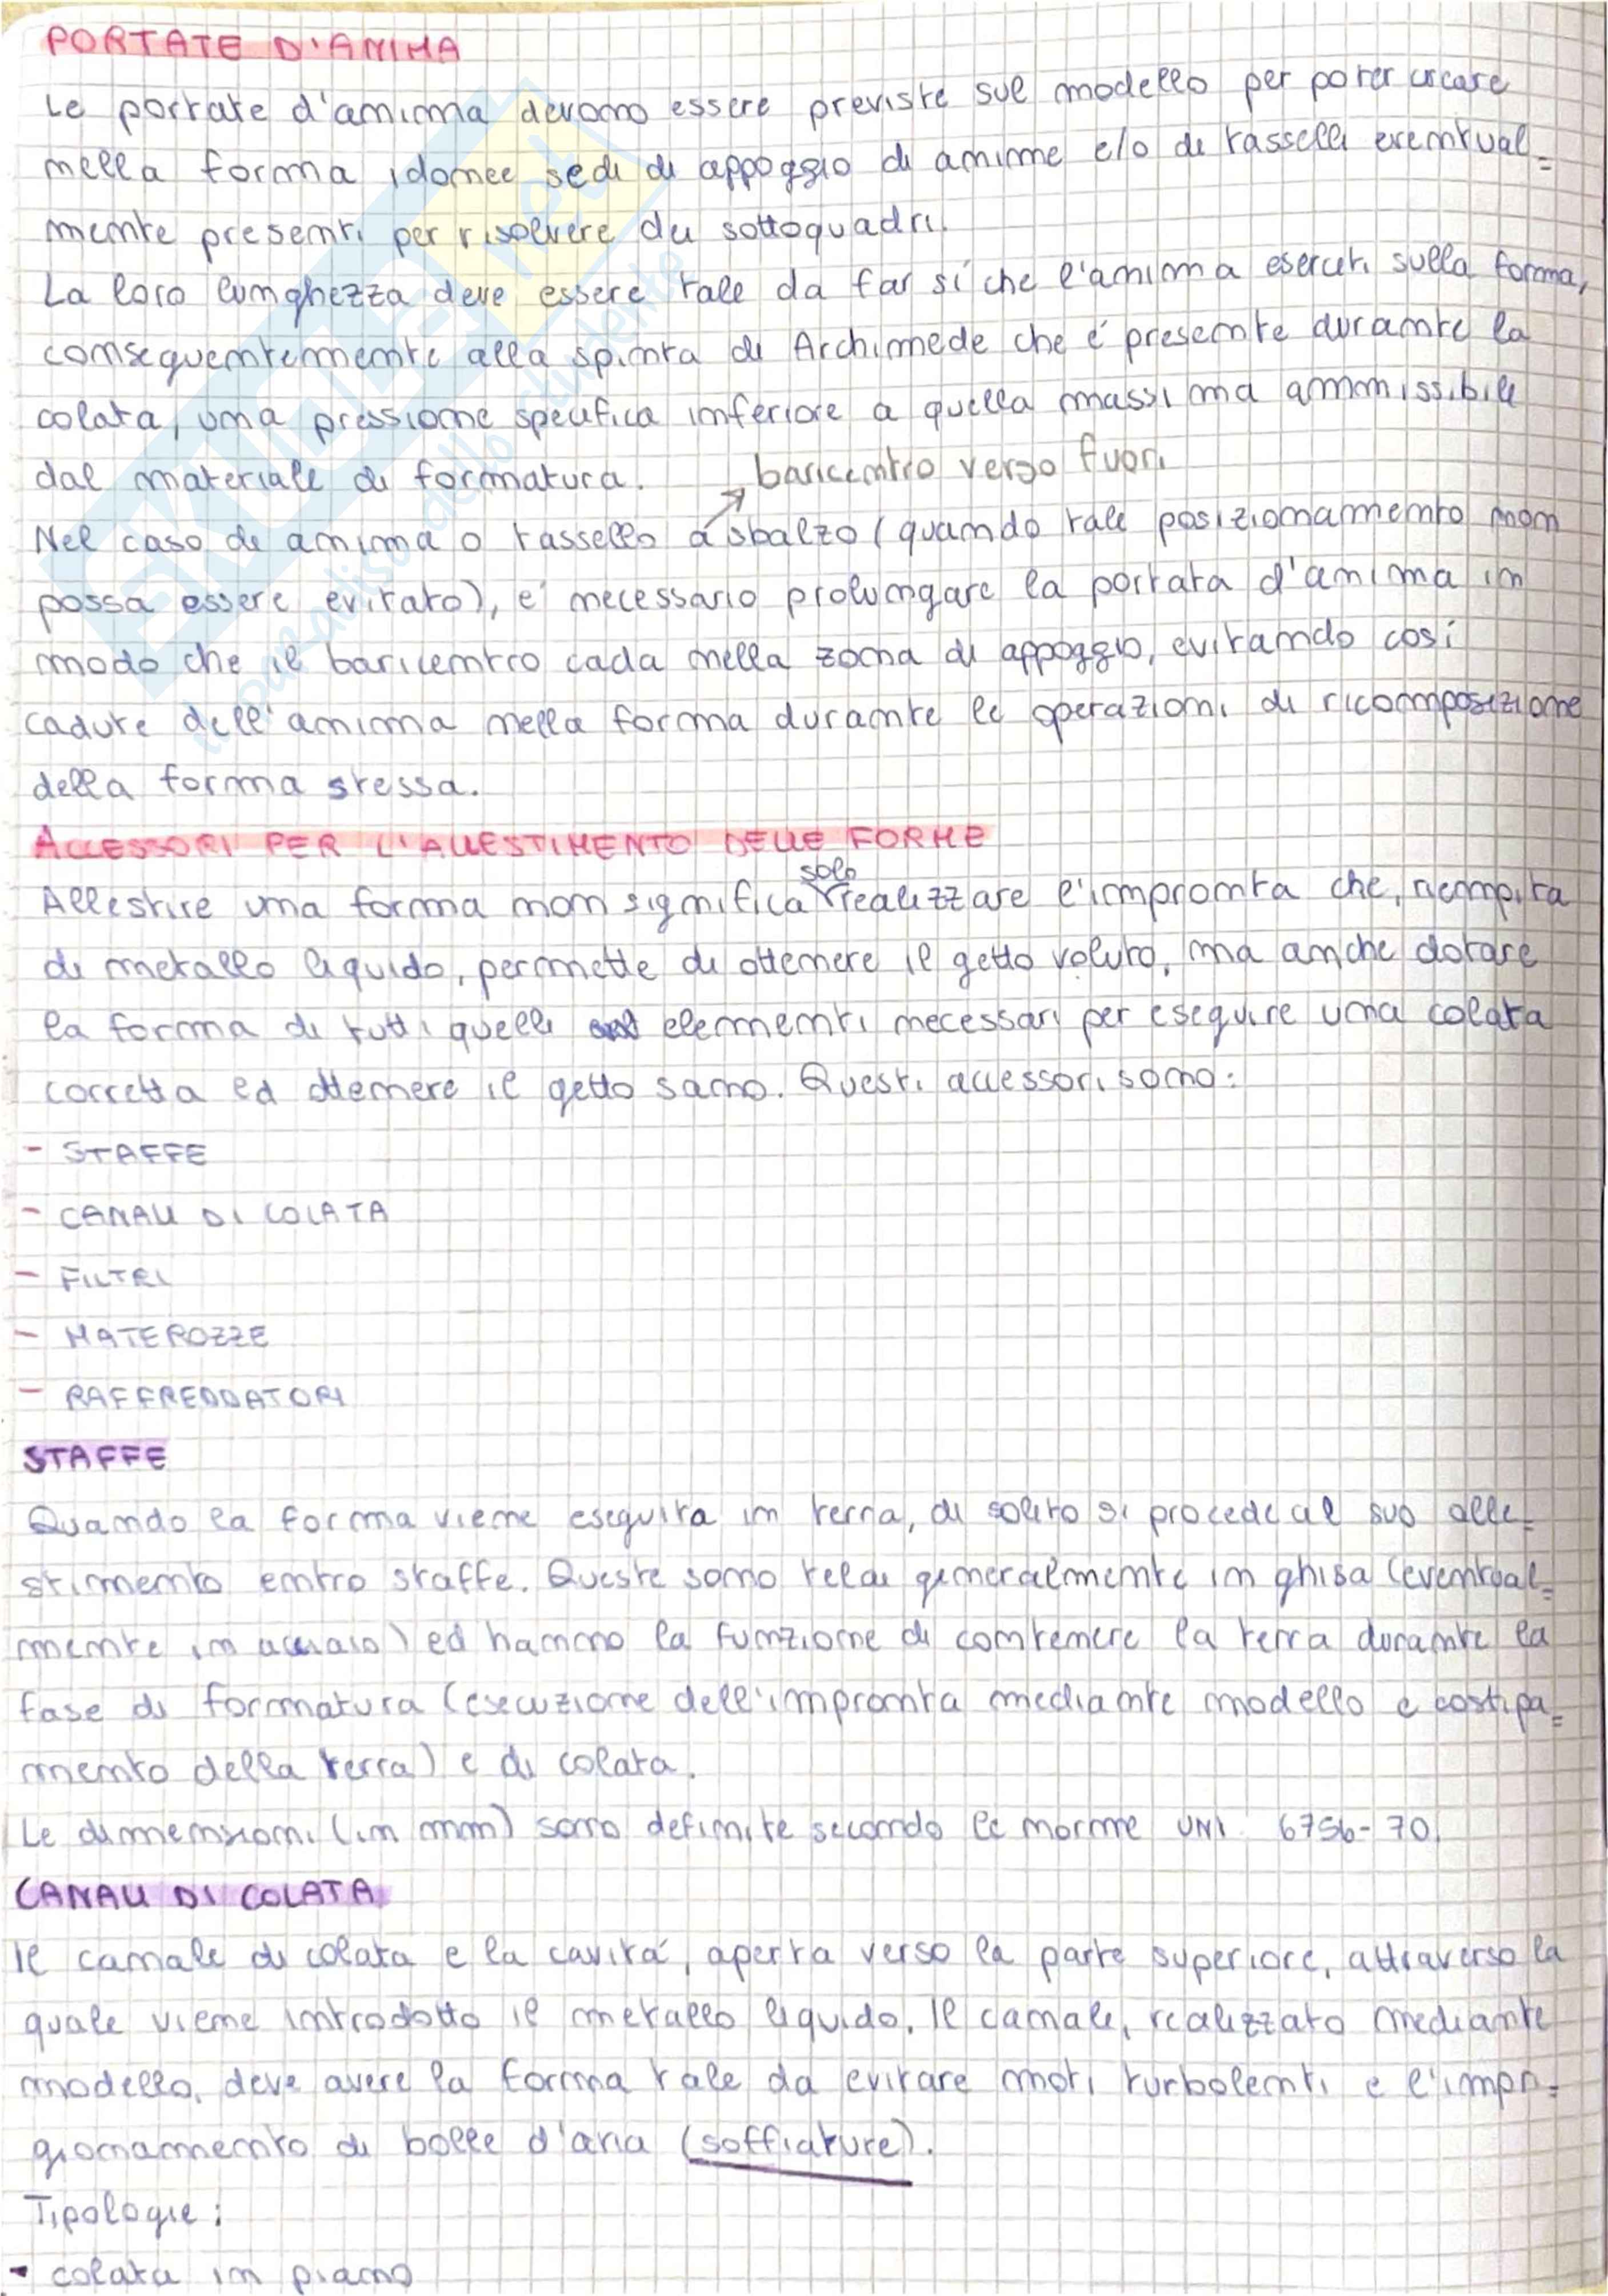 PORTATE D'ANIMA
Le portate d'anima devono essere previste sul modello per poter creare
nella forma idonee sedi di appoggio di anime e/o di tasselli eventual=
mente presenti per risolvere dei sottoquadri.
La loro lunghezza deve essere tale da far sí che l'anima eserciti sulla forma,
conseguentemente alla spinta di Archimede che é presente durante la
colata, una pressione specifica inferiore a quella massima ammissibile
dal materiale di formatura.
baricentro verso fuori
Nel caso di anima o tassello a sbalzo (quando tale posizionamento non
possa essere evitato), e' necessario prolungare la portata d'anima in
modo che il baricentro cada nella zona di appoggio, evitando cosí
cadute dell'anima nella forma durante le operazioni di ricomposizione
della forma stessa.
ACCESSORI PER L'ALLESTIMENTO DELLE FORME
Allestire una forma non significa solo realizzare l'impronta che, riempita
di metallo liquido, permette di ottenere il getto voluto, ma anche dotare
la forma di tutti quelli elementi necessari per eseguire una colata
corretta ed ottenere il getto sano. Questi accessori sono:
- STAFFE
- CANALI DI COLATA
- FILTRI
- MATEROZZE
- RAFFREDDATORI
STAFFE
Quando la forma viene eseguita in terra, di solito si procede al suo alle=
stimento entro staffe. Queste sono telai generalmente in ghisa (eventual=
mente in acciaio) ed hanno la funzione di contenere la terra durante la
fase di formatura (esecuzione dell'impronta mediante modello e costipa=
mento della terra) e di colata.
Le dimensioni (in mm) sono definite secondo le norme UNI 6756-70.
CANALI DI COLATA
Il canale di colata e la cavitá, aperta verso la parte superiore, attraverso la
quale viene introdotto il metallo liquido. Il canale, realizzato mediante
modello, deve avere la forma tale da evitare moti turbolenti e l'impri=
gionamento di bolle d'aria (soffiature).
Tipologie:
- colata in piano